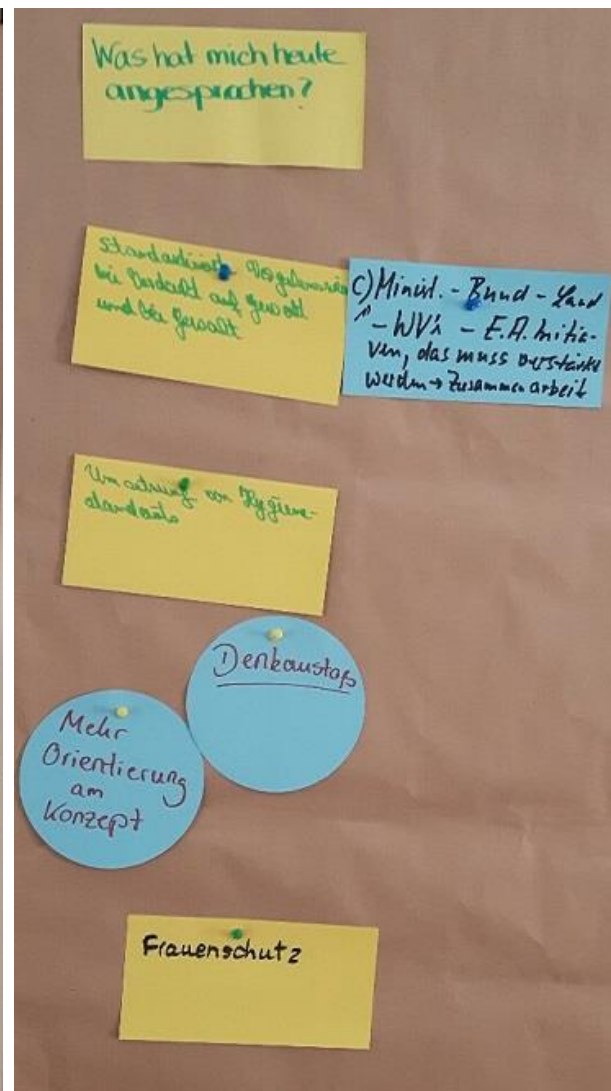 Was hat mich heute
angesprochen?
Standardisierte
bei Verdacht auf Gewalt
und bei Gewalt
C) Minist. - Bund - Land
- WV's - E.A. Initia-
ven, das muss verstärkt
werden → Zusammenarbeit
Umsetzung von Hygiene-
standards
Denkanstoß
Mehr
Orientierung
am
Konzept
Frauenschutz